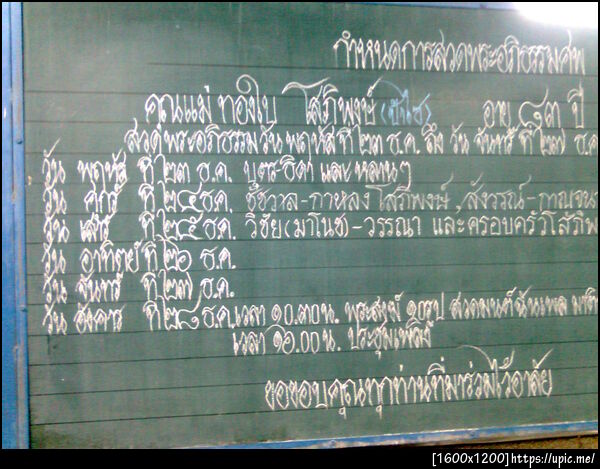 กำหนดการสวดพระอภิธรรมศพ
คุณแม่ ทองใบ โสภิพงษ์ อายุ ๘๓ ปี
สวดพระอภิธรรมวัน พฤหัส ที่ ๒๓ ธ.ค. ถึง วัน จันทร์ ที่ ๒๗ ธ.ค
วัน พฤหัส ที่ ๒๓ ธ.ค. บุตร-ธิดา และ หลานๆ
วัน ศุกร์ ที่ ๒๔ ธ.ค. ชัชวาล-กาหลง โสภิพงษ์, สังวรณ์-กาญจนา
วัน เสาร์ ที่ ๒๕ ธ.ค. วิชัย(มาโนช)-วรรณา และครอบครัวโสภิพ
วัน อาทิตย์ ที่ ๒๖ ธ.ค.
วัน จันทร์ ที่ ๒๗ ธ.ค.
วัน อังคาร ที่ ๒๘ ธ.ค. เวลา ๑๐.๓๐น. พระสงฆ์ ๑๐รูป สวดมนต์ฉันเพล
เวลา ๑๖.00น. ประชุมเพลิง
ขอขอบคุณทุกท่านที่มาร่วมไว้อาลัย
[1600x1200]https://upic.me/